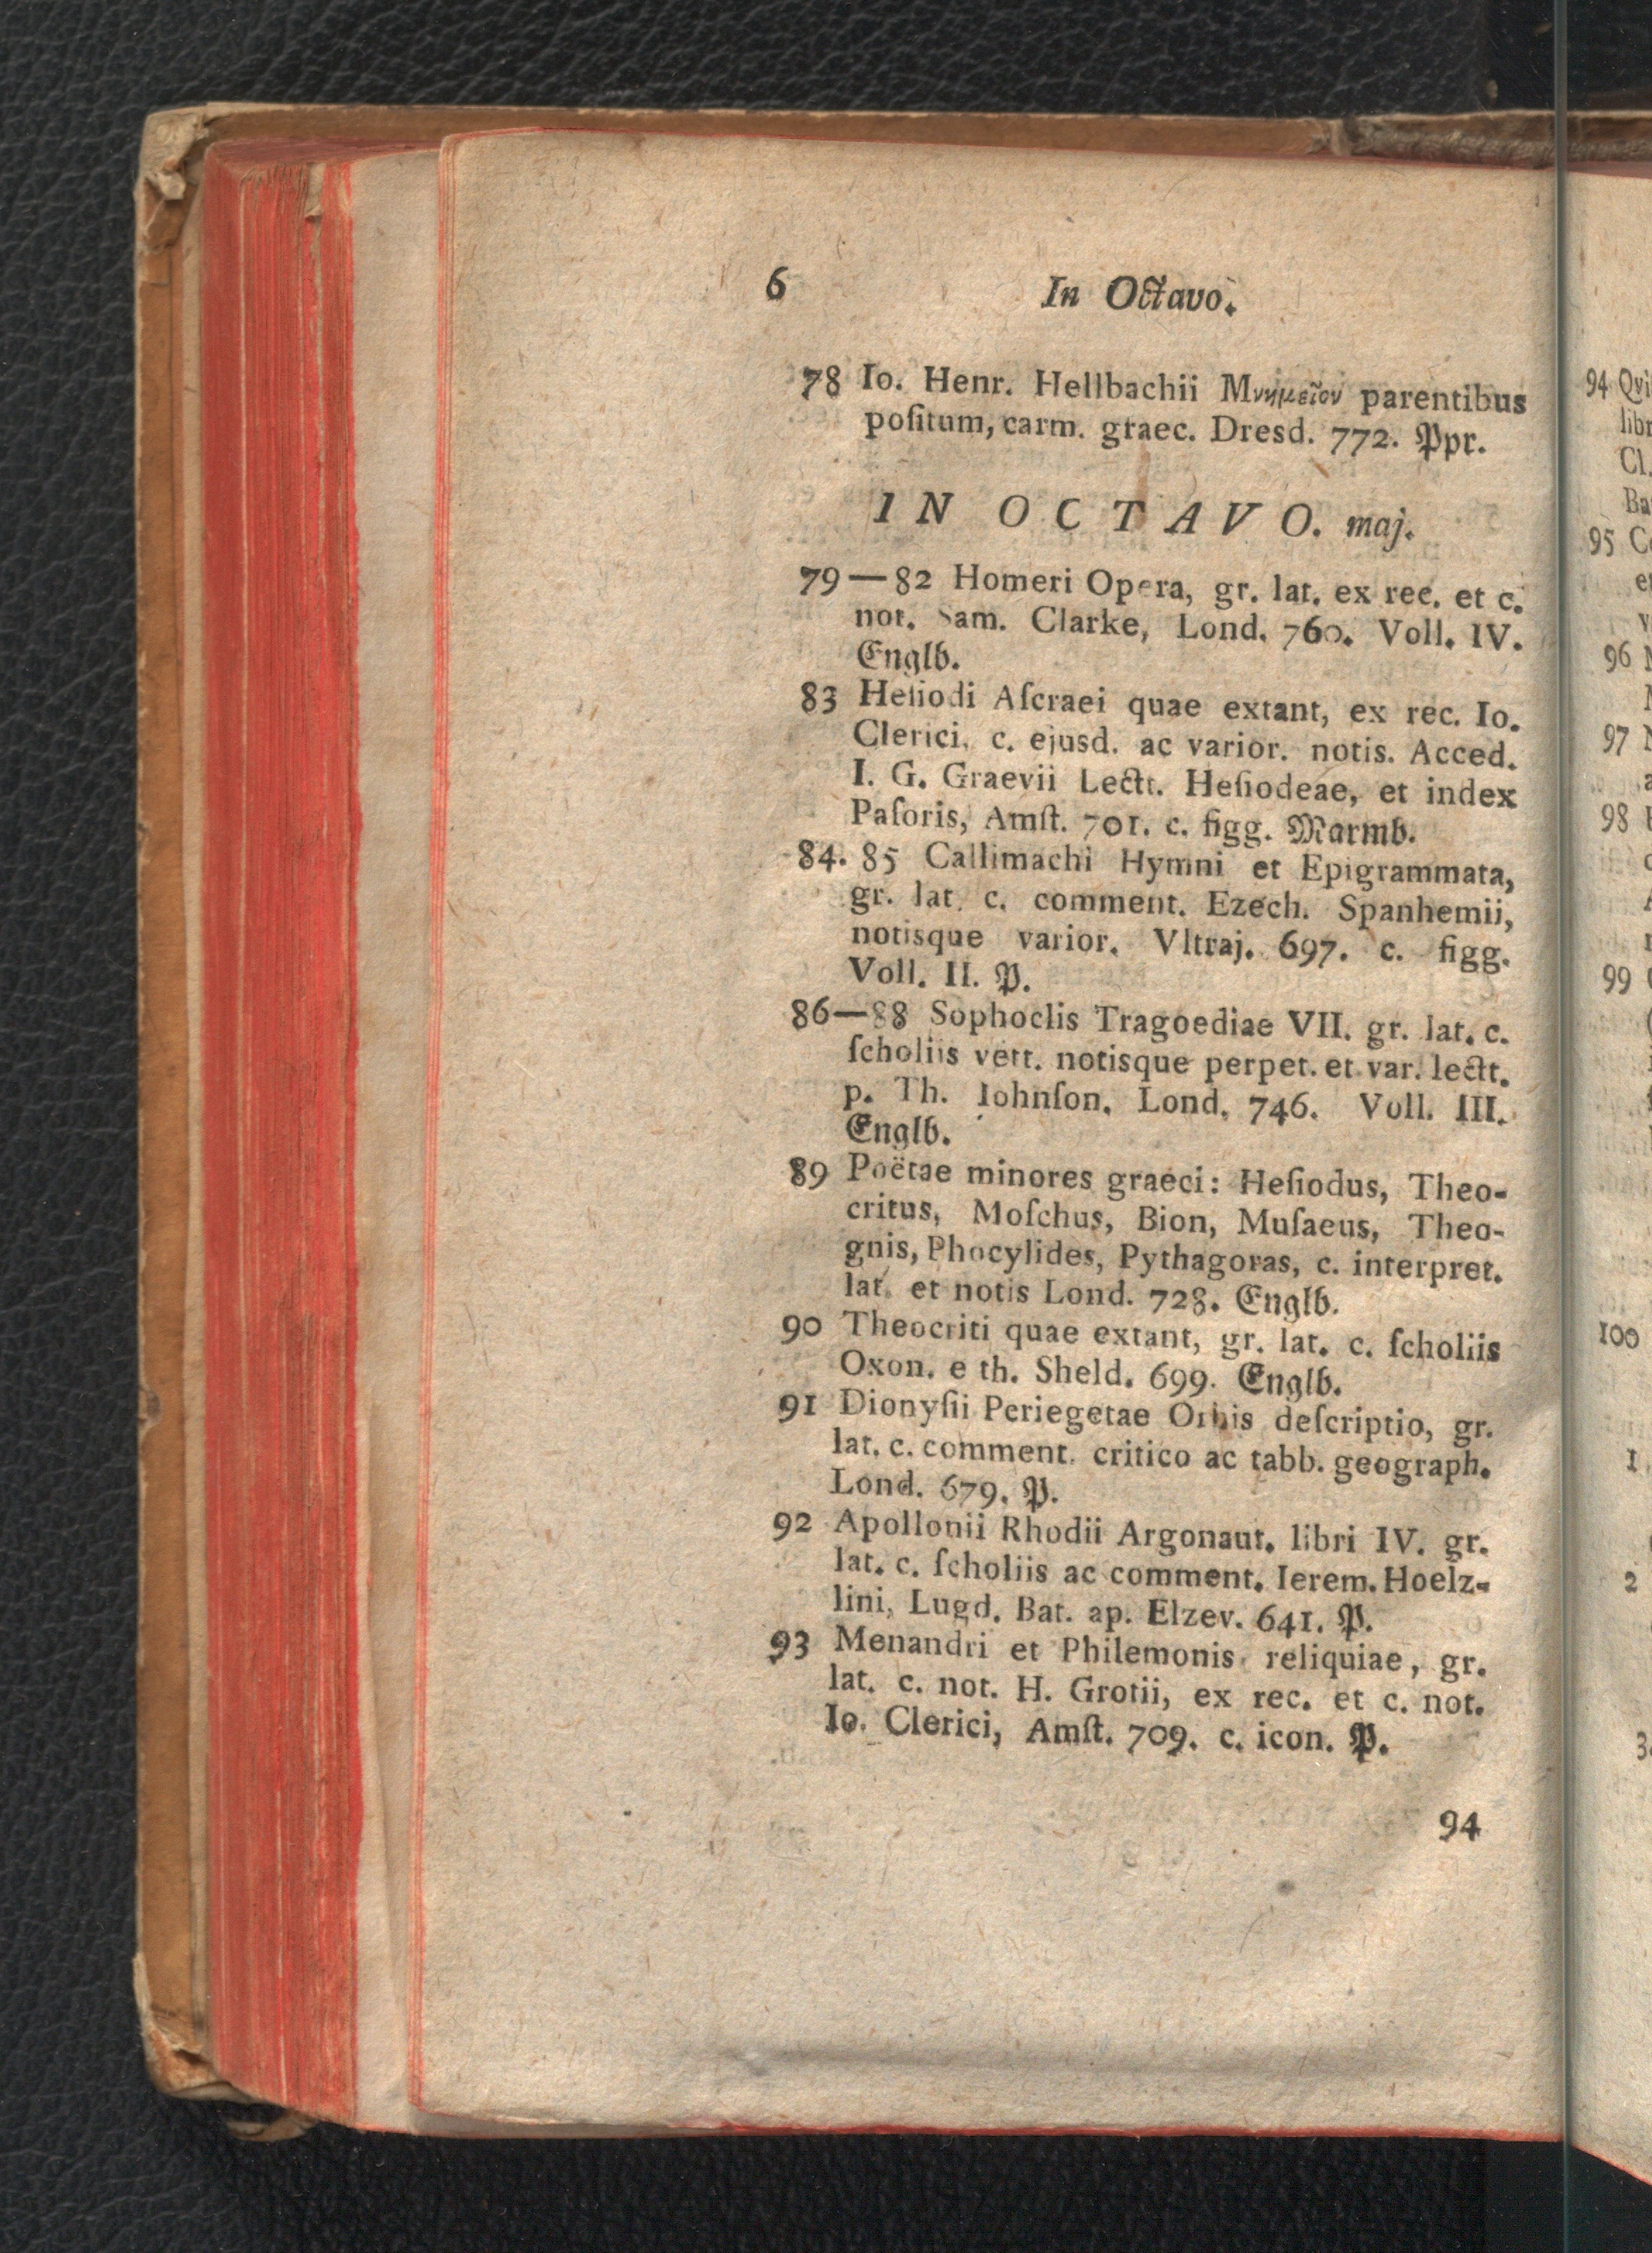 6
In Octavo.
78 Io. Henr. Hellbachii Μνημεῖον parentibus
poſitum, carm. graec. Dresd. 772. Ppr.
IN OCTAVO. maj.
79—82 Homeri Opera, gr. lat. ex rec. et c.
not. Sam. Clarke, Lond. 760. Voll. IV.
Englb.
83 Heſiodi Aſcraei quae extant, ex rec. Io.
Clerici, c. ejusd. ac varior. notis. Acced.
I. G. Graevii Lectt. Heſiodeae, et index
Paſoris, Amſt. 701. c. figg. Marmb.
84. 85 Callimachi Hymni et Epigrammata,
gr. lat. c. comment. Ezech. Spanhemii,
notisque varior. Vltraj. 697. c. figg.
Voll. II. P.
86—88 Sophoclis Tragoediae VII. gr. lat. c.
ſcholiis vett. notisque perpet. et var. lectt.
p. Th. Iohnſon, Lond. 746. Voll. III.
Englb.
89 Poëtae minores graeci: Heſiodus, Theo-
critus, Moſchus, Bion, Muſaeus, Theo-
gnis, Phocylides, Pythagoras, c. interpret.
lat. et notis Lond. 728. Englb.
90 Theocriti quae extant, gr. lat. c. ſcholiis
Oxon. e th. Sheld. 699. Englb.
91 Dionyſii Periegetae Orbis deſcriptio, gr.
lat. c. comment. critico ac tabb. geograph.
Lond. 679. P.
92 Apollonii Rhodii Argonaut. libri IV. gr.
lat. c. ſcholiis ac comment. Ierem. Hoelz-
lini, Lugd. Bat. ap. Elzev. 641. P.
93 Menandri et Philemonis reliquiae, gr.
lat. c. not. H. Grotii, ex rec. et c. not.
Io. Clerici, Amſt. 709. c. icon. P.
94
94 Qvi
libr
Cl.
Ba
95
96
97
98
99
100
1
2